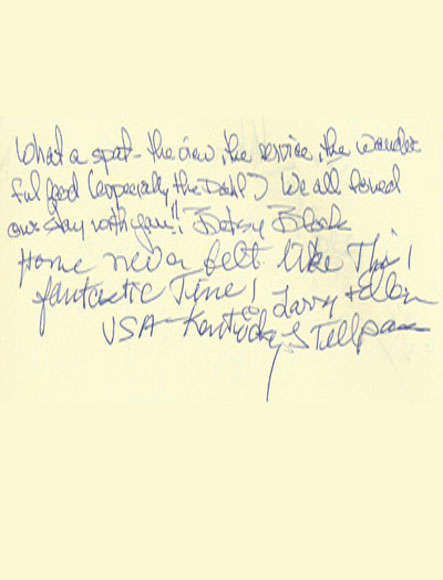 What a spot - the view, the service, the wonder
ful food (especially the Dahl) We all loved
our stay with you!! Betsy Block
Home never felt like This!
fantastic Time! Larry + Ellen
USA - Kentucky